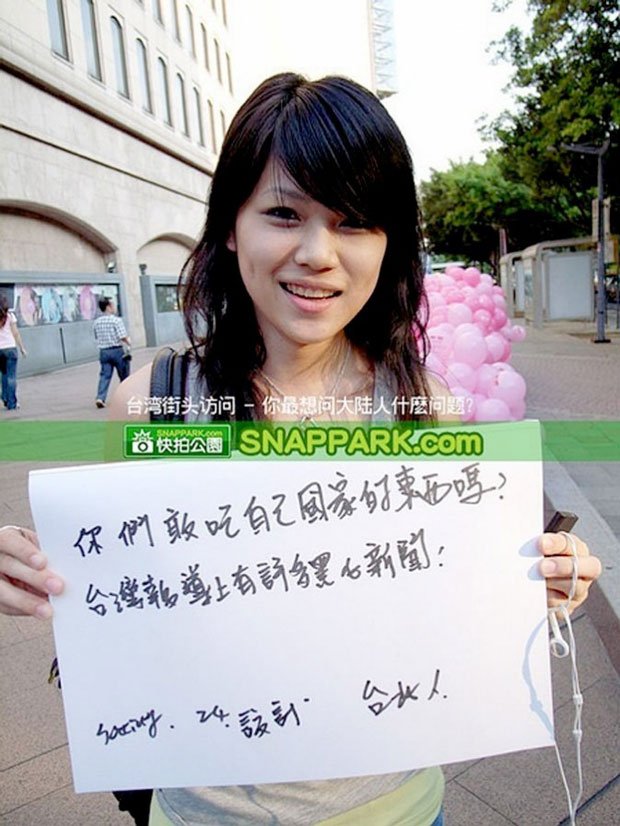 台湾街头访问 - 你最想问大陆人什麽问题?
SNAPPARK.com
快拍公園
SNAPPARK.com
你們敢吃自己國家的東西嗎?
台灣報導上有許多黑心新聞!
24. 設計. 台北人.